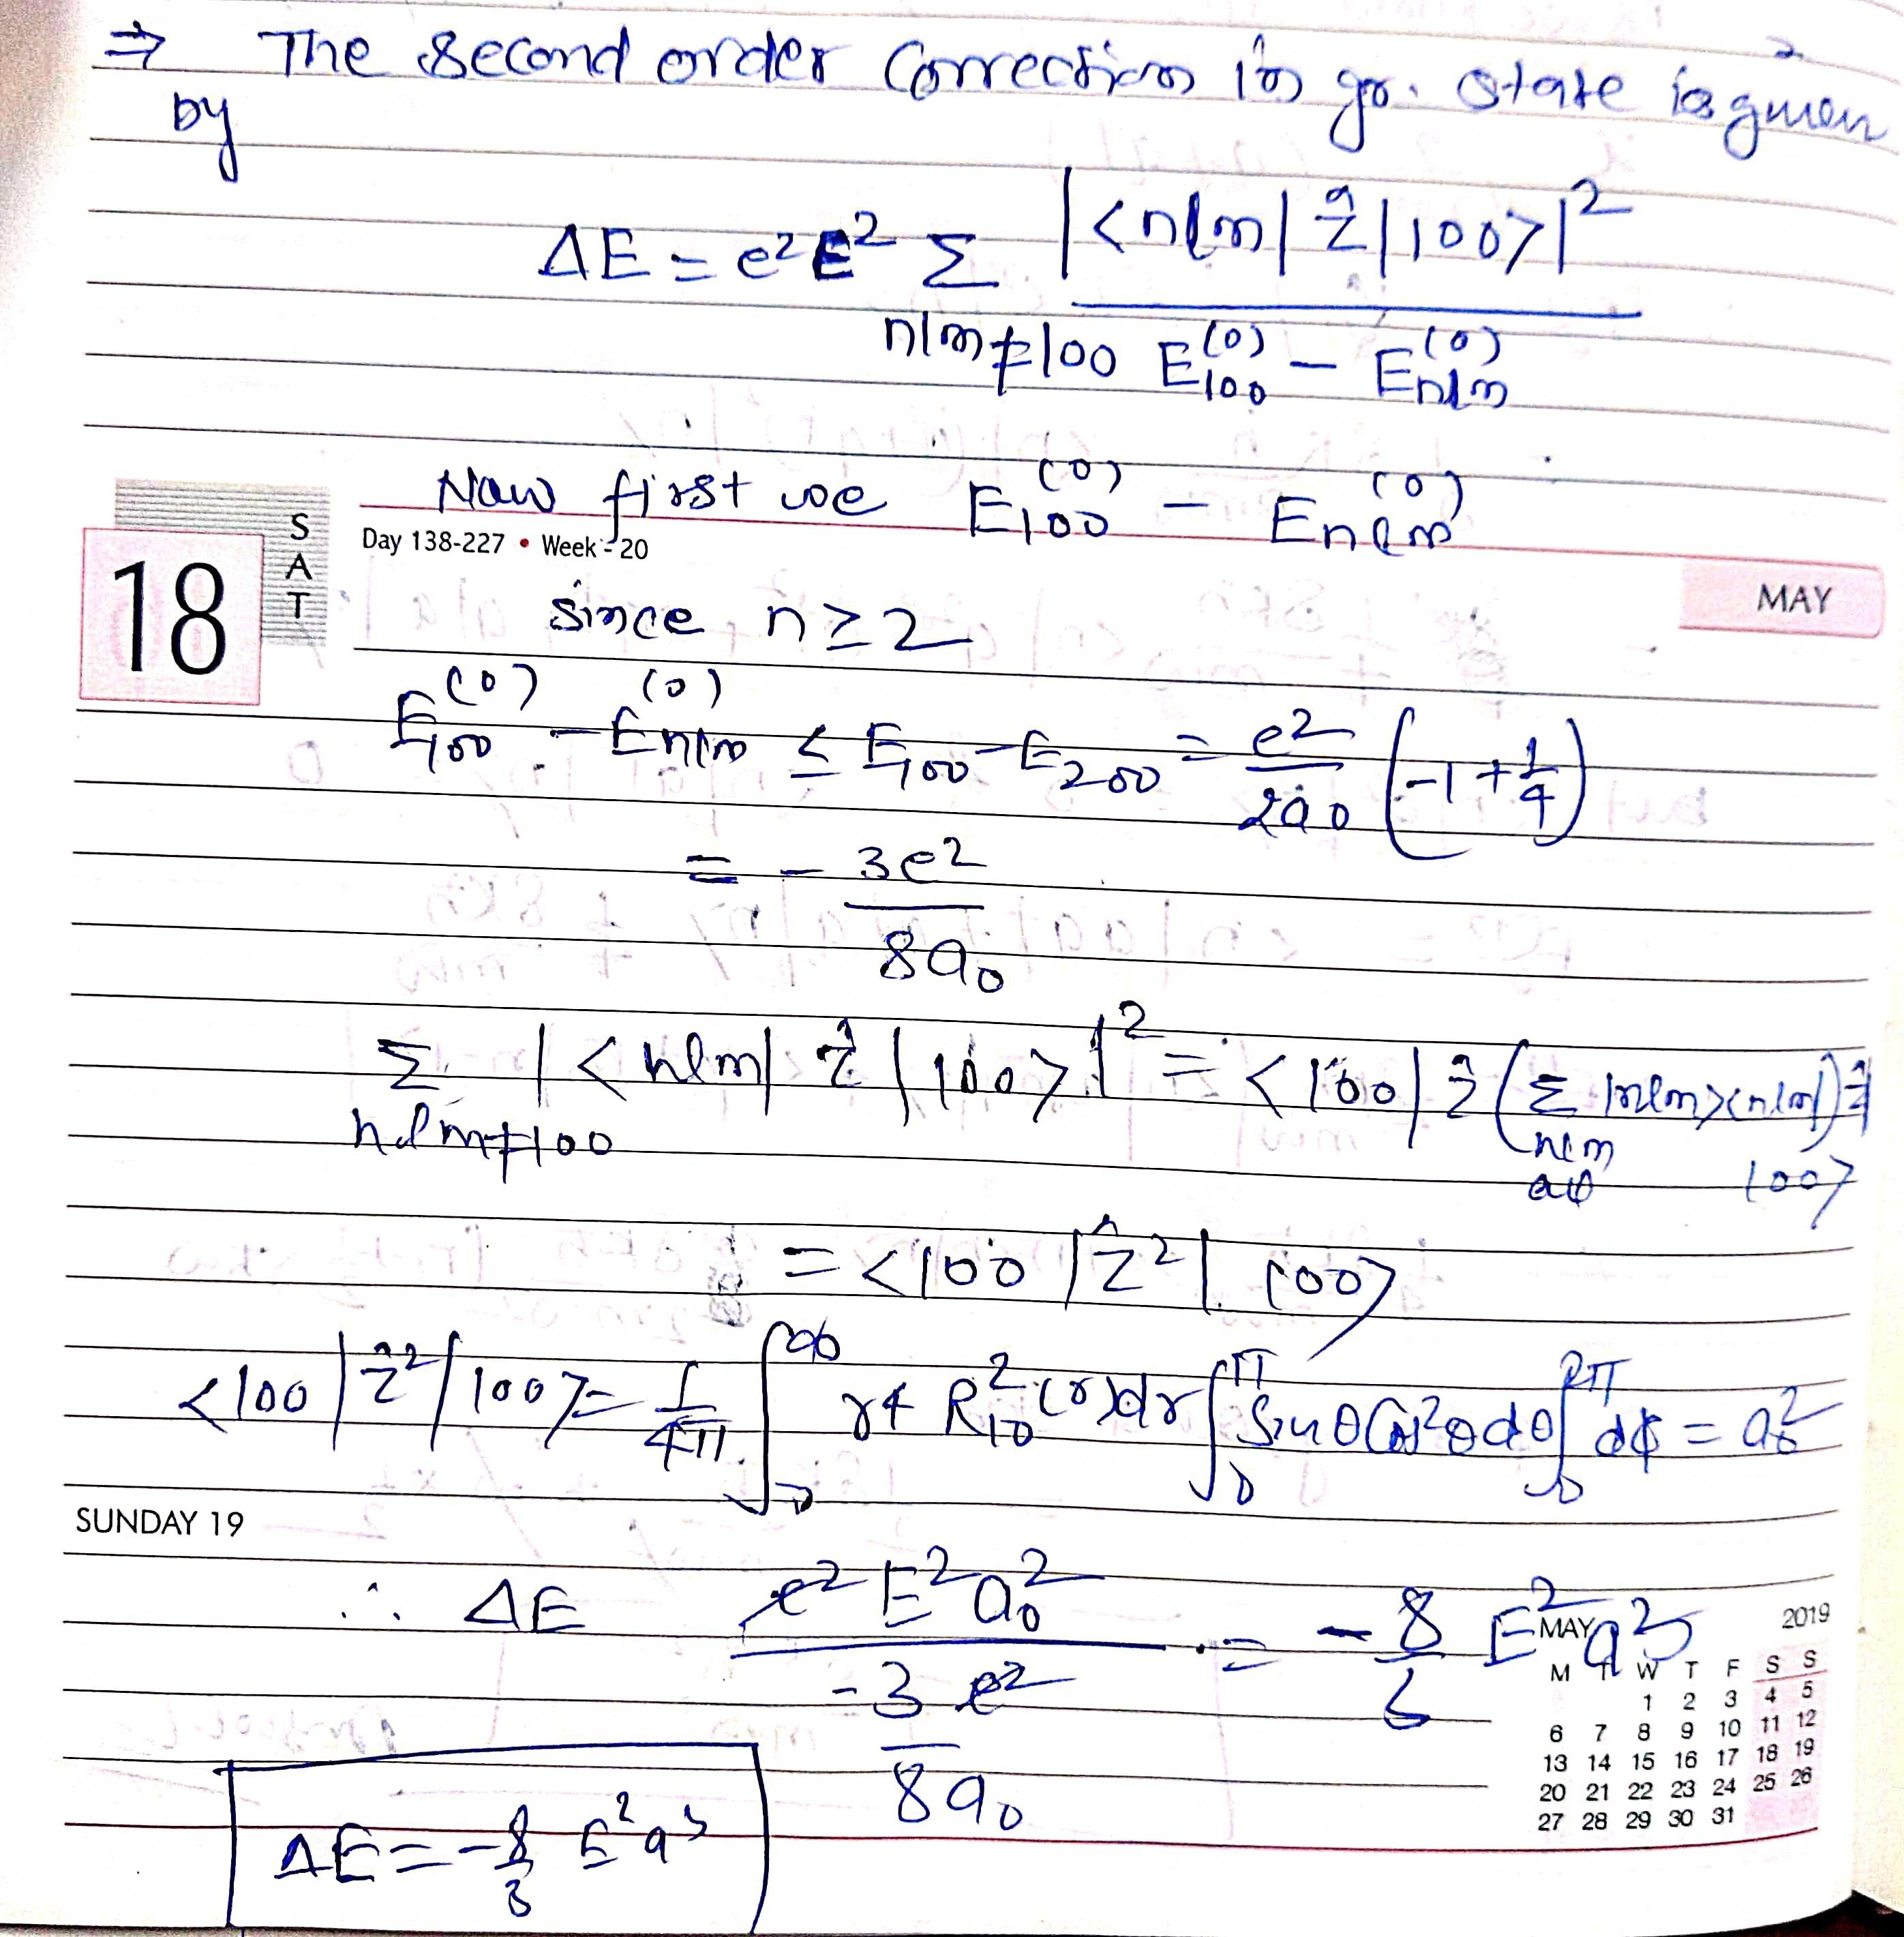 ⇒ The second order Correction in gr. state is given
by
ΔE = e²E² Σ |<nlm| ẑ |100>|²
nlm≠100 E₁₀₀⁽⁰⁾ − Eₙₗₘ⁽⁰⁾
Now first we E₁₀₀⁽⁰⁾ − Eₙₗₘ⁽⁰⁾
Day 138-227 • Week - 20
SAT
18
MAY
since n ≥ 2
E₁₀₀⁽⁰⁾ − Eₙₗₘ⁽⁰⁾ ≤ E₁₀₀ − E₂₀₀ = e²/2a₀ (−1 + 1/4)
= − 3e²/8a₀
Σ |<nlm| ẑ |100>|² = <100| ẑ (Σ |nlm><nlm|) ẑ
nlm≠100 nlm all 100>
= <100 |ẑ²| 100>
<100| ẑ² |100> = 1/4π ∫₀^∞ r⁴ R₁₀²(r)dr ∫₀^π Sinθ Cos²θ dθ ∫₀^2π dϕ = a₀²
SUNDAY 19
∴ ΔE e²E²a₀² / −3e²/8a₀ = − 8/3 E²a³
ΔE = −8/3 E²a³
MAY 2019
M T W T F S S
1 2 3 4 5
6 7 8 9 10 11 12
13 14 15 16 17 18 19
20 21 22 23 24 25 26
27 28 29 30 31